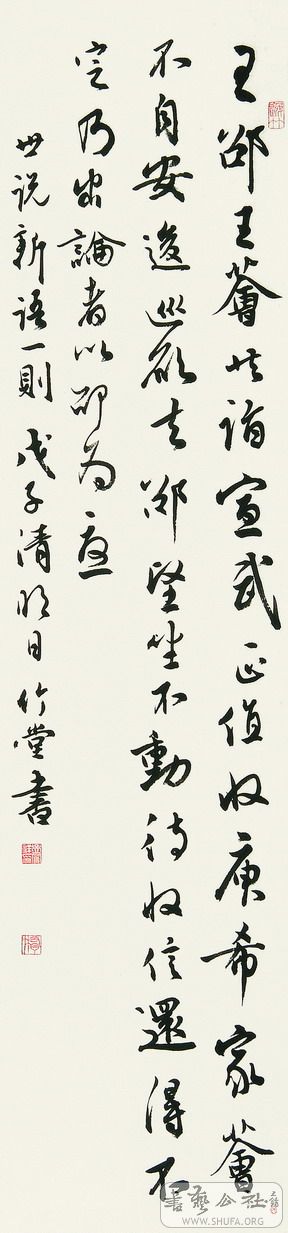 王邵王薈共詣宣武正值收庾希家薈
不自安逡巡欲去邵堅坐不動待收信還得不
定乃出論者以邵為優
世说新语一則戊子清明日竹堂書
書藝公社
WWW.SHUFA.ORG